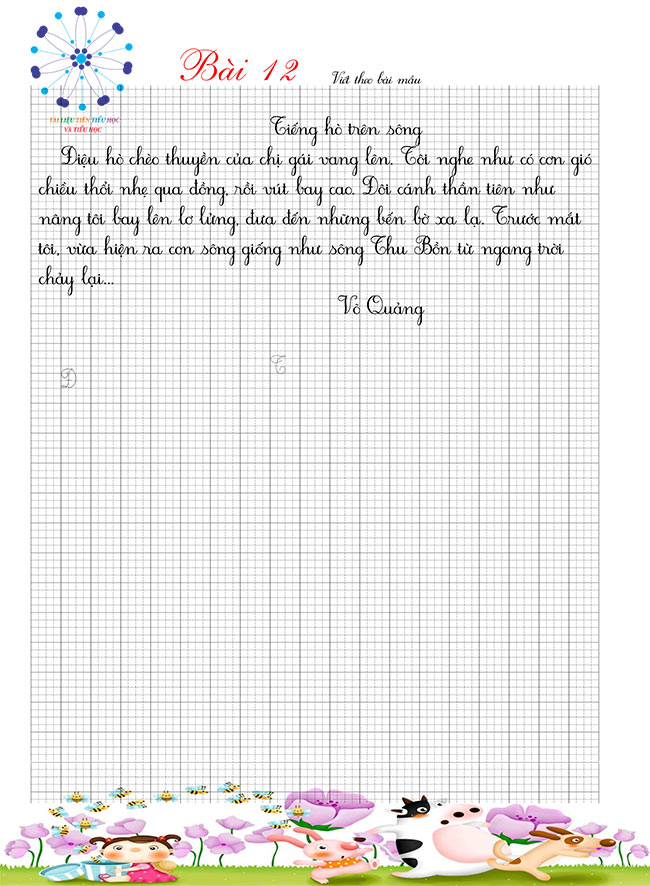 Bài 12
Viết theo bài mẫu
TÀI LIỆU TIỀN TIỂU HỌC
VÀ TIỂU HỌC
Tiếng hò trên sông
Điệu hò chèo thuyền của chị gái vang lên. Tôi nghe như có cơn gió
chiều thổi nhẹ qua đồng, rồi vút bay cao. Đôi cánh thần tiên như
nâng tôi bay lên lơ lửng, đưa đến những bến bờ xa lạ. Trước mắt
tôi, vừa hiện ra con sông giống như sông Thu Bồn từ ngang trời
chảy lại...
Võ Quảng
T
Đ